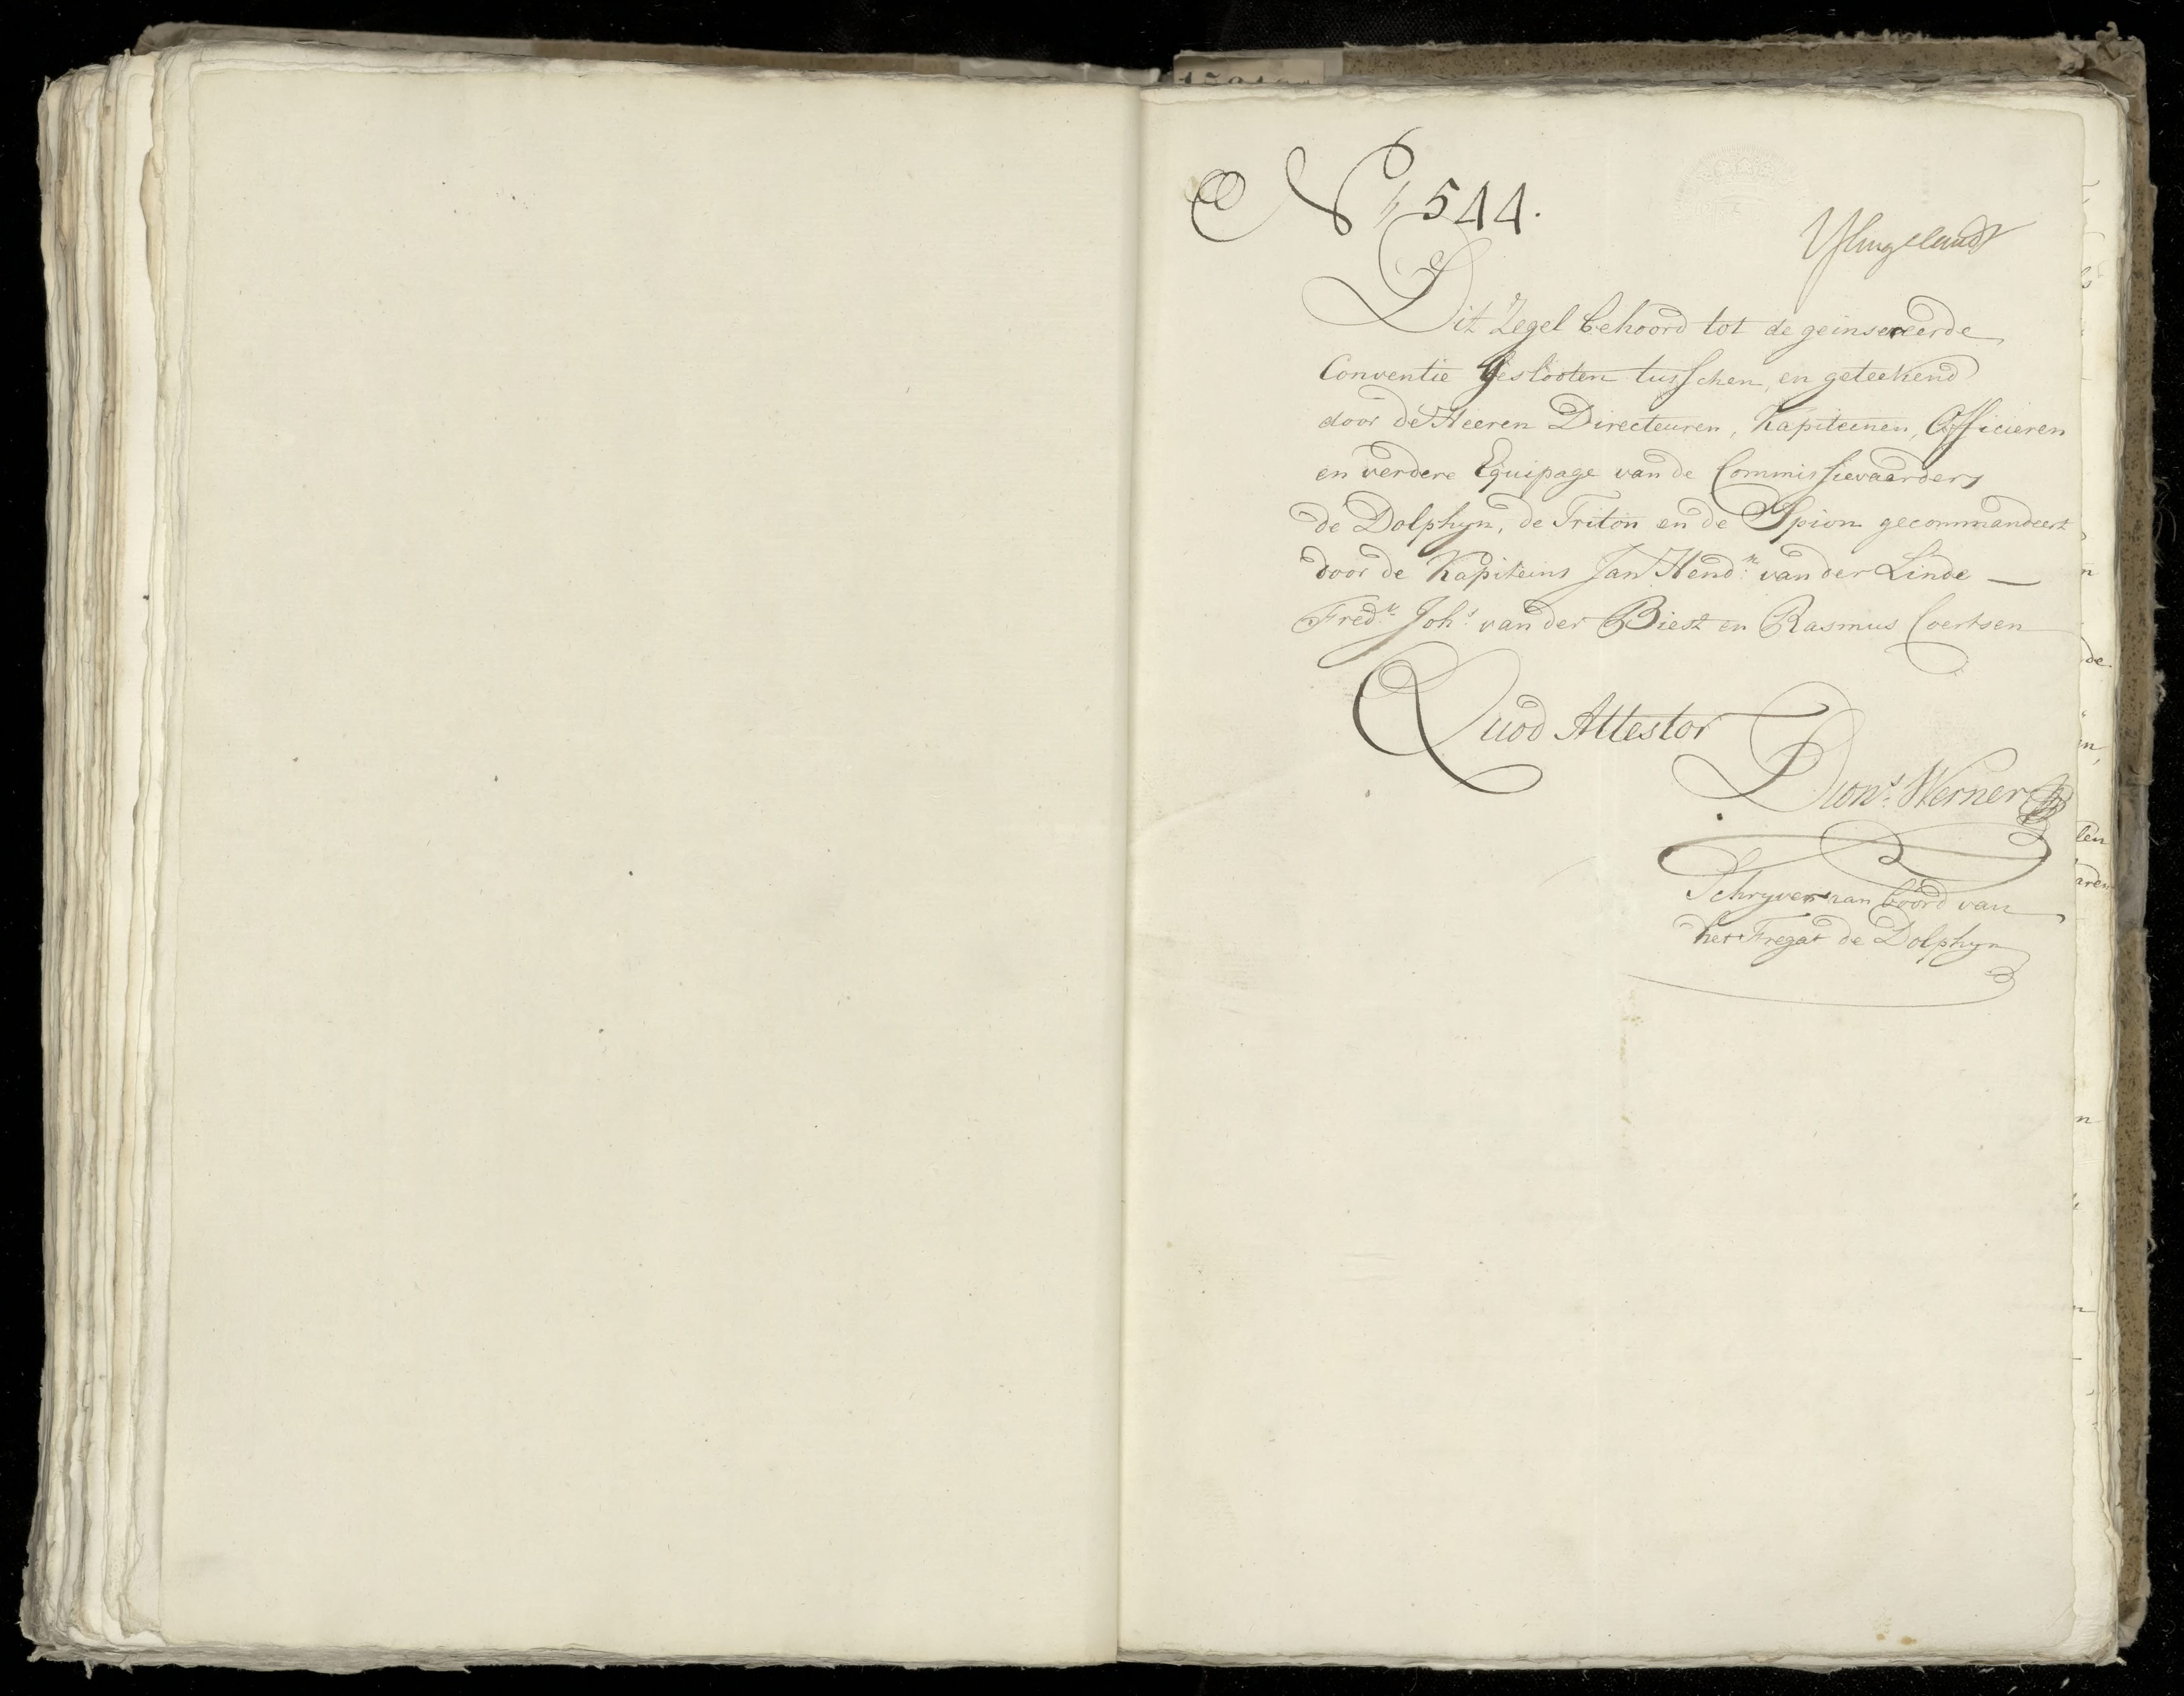 N 544.
Dit Zegel behoord tot de geinsereerde
Conventie Geslooten tusschen, en geteekend
door de Heeren Directeuren, Kapiteinen, Officieren
en verdere Equipage van de Commissievaarders
de Dolphyn, de Triton en de Spion gecommandeert
door de Kapiteins Jan Hend:k van der Linde —
Fred:k Joh:s van der Biest en Rasmus Coertsen
Quod Attestor
Dion:s Werner
Schryver aan boord van
het Fregat de Dolphyn